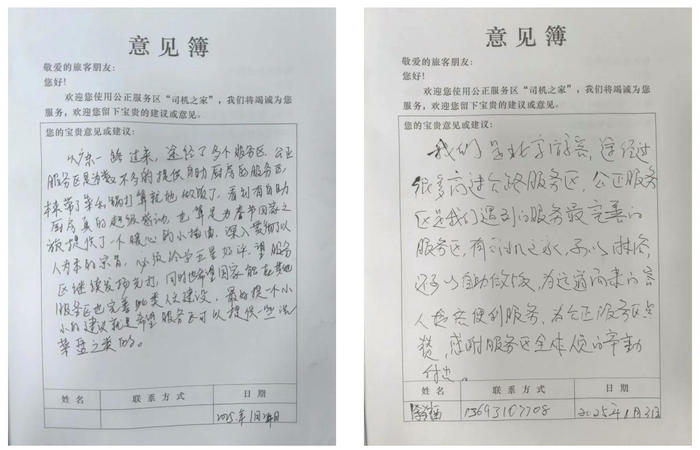 意见簿
敬爱的旅客朋友：
您好！
欢迎您使用公正服务区“司机之家”，我们将竭诚为您
服务，欢迎您留下宝贵的建议或意见。
您的宝贵意见或建议：
从广东一路过来，途经了多个服务区，公正
服务区是为数不多的提供自助厨房的服务区，
本来带了
打算就地做饭了，看到有自助
厨房真的超级感动，也算是为春节回家之
旅提供了一个暖心的小插曲，深入贯彻了以
人为本的宗旨，必须给予五星好评，望服务
区继续发扬光大，同时也希望国家能在其他
服务区也完善此类人文建设，最好提一个小
小的建议就是希望服务区可以提供一些洗
菜盆之类的。
姓名
联系方式
日期
2025年1月
意见簿
敬爱的旅客朋友：
您好！
欢迎您使用公正服务区“司机之家”，我们将竭诚为您
服务，欢迎您留下宝贵的建议或意见。
您的宝贵意见或建议：
我们是北京游客，途经过
很多高速公路服务区，公正服务
区是我们遇到的服务最完善的
服务区，有司机之家，可以淋浴，
还可以自助做饭，为远道而来的客
人提供便利服务，为公正服务区点
赞，感谢服务区全体人员的辛勤
付出。
姓名
联系方式
日期
13693107708
2025年1月31日